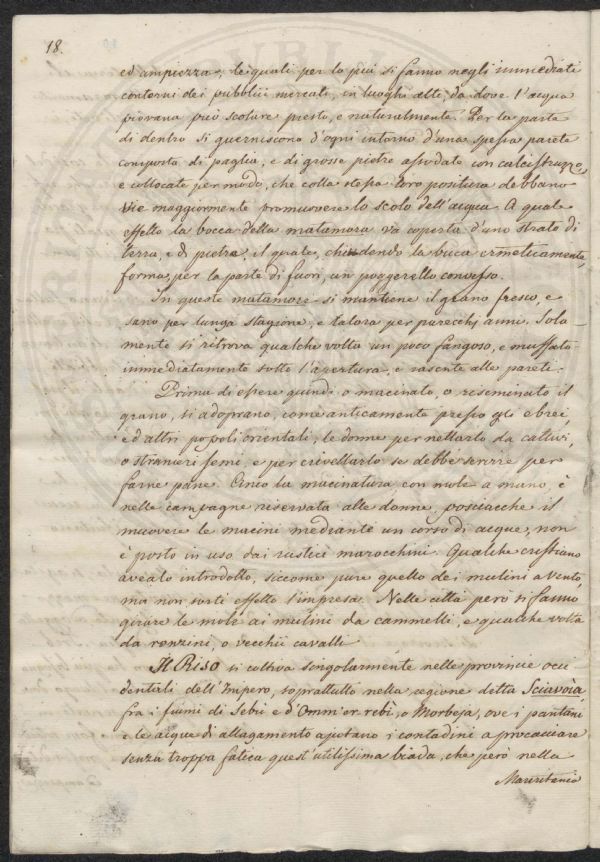 18.
ed ampiezza, le quali per lo più si fanno negli immediati
contorni dei pubblici mercati, in luoghi alti, da dove l'acqua
piovana può scolare presto, e naturalmente. Per la parte
di dentro si guerniscono d'ogni intorno d'una spessa parete
composta di paglia, e di grosse pietre assodate con calcistruzzo,
e collocate per modo, che colla stessa loro positura debbano
vie maggiormente promuovere lo scolo dell'acqua. A quale
effetto la bocca della matamora va coperta d'uno strato di
terra, e di pietra, il quale, chiudendo la buca ermeticamente,
forma, per la parte di fuori, un poggerello convesso.
In queste matamore si mantiene il grano fresco, e
sano per lunga stagione, e talora per parecchi anni. Sola
mente si ritrova qualche volta un poco fangoso, e muffato
immediatamente sotto l'apertura, e rasente alle pareti.
Prima di essere quindi o macinato, o riseminato il
grano, si adoprano, come anticamente presso gli ebrei,
ed altri popoli orientali, le donne per nettarlo da cattivi,
o stranieri semi, e per crivellarlo se debbe servire per
farne pane. Circa la macinatura con mole a mano, è
nelle campagne riservata alle donne, posciacchè il
muovere le macini mediante un corso di acque, non
è posto in uso dai rustici marocchini. Qualche cristiano
avealo introdotto, siccome pure quello dei mulini a vento,
ma non sortì effetto l'impresa. Nelle città però si fanno
girare le mole ai mulini da cammelli, e qualche volta
da ronzini, o vecchii cavalli.
Il Riso si coltiva singolarmente nelle provincie occi
dentali dell'Impero, soprattutto nella regione detta Sciavoia,
fra i fiumi di Sebù e d'Omm'er-rebì, o Morbeja, ove i pantani
e le acque di allagamento ajutano i contadini a procacciare
senza troppa fatica quest'utilissima biada, che però nella
Mauritania